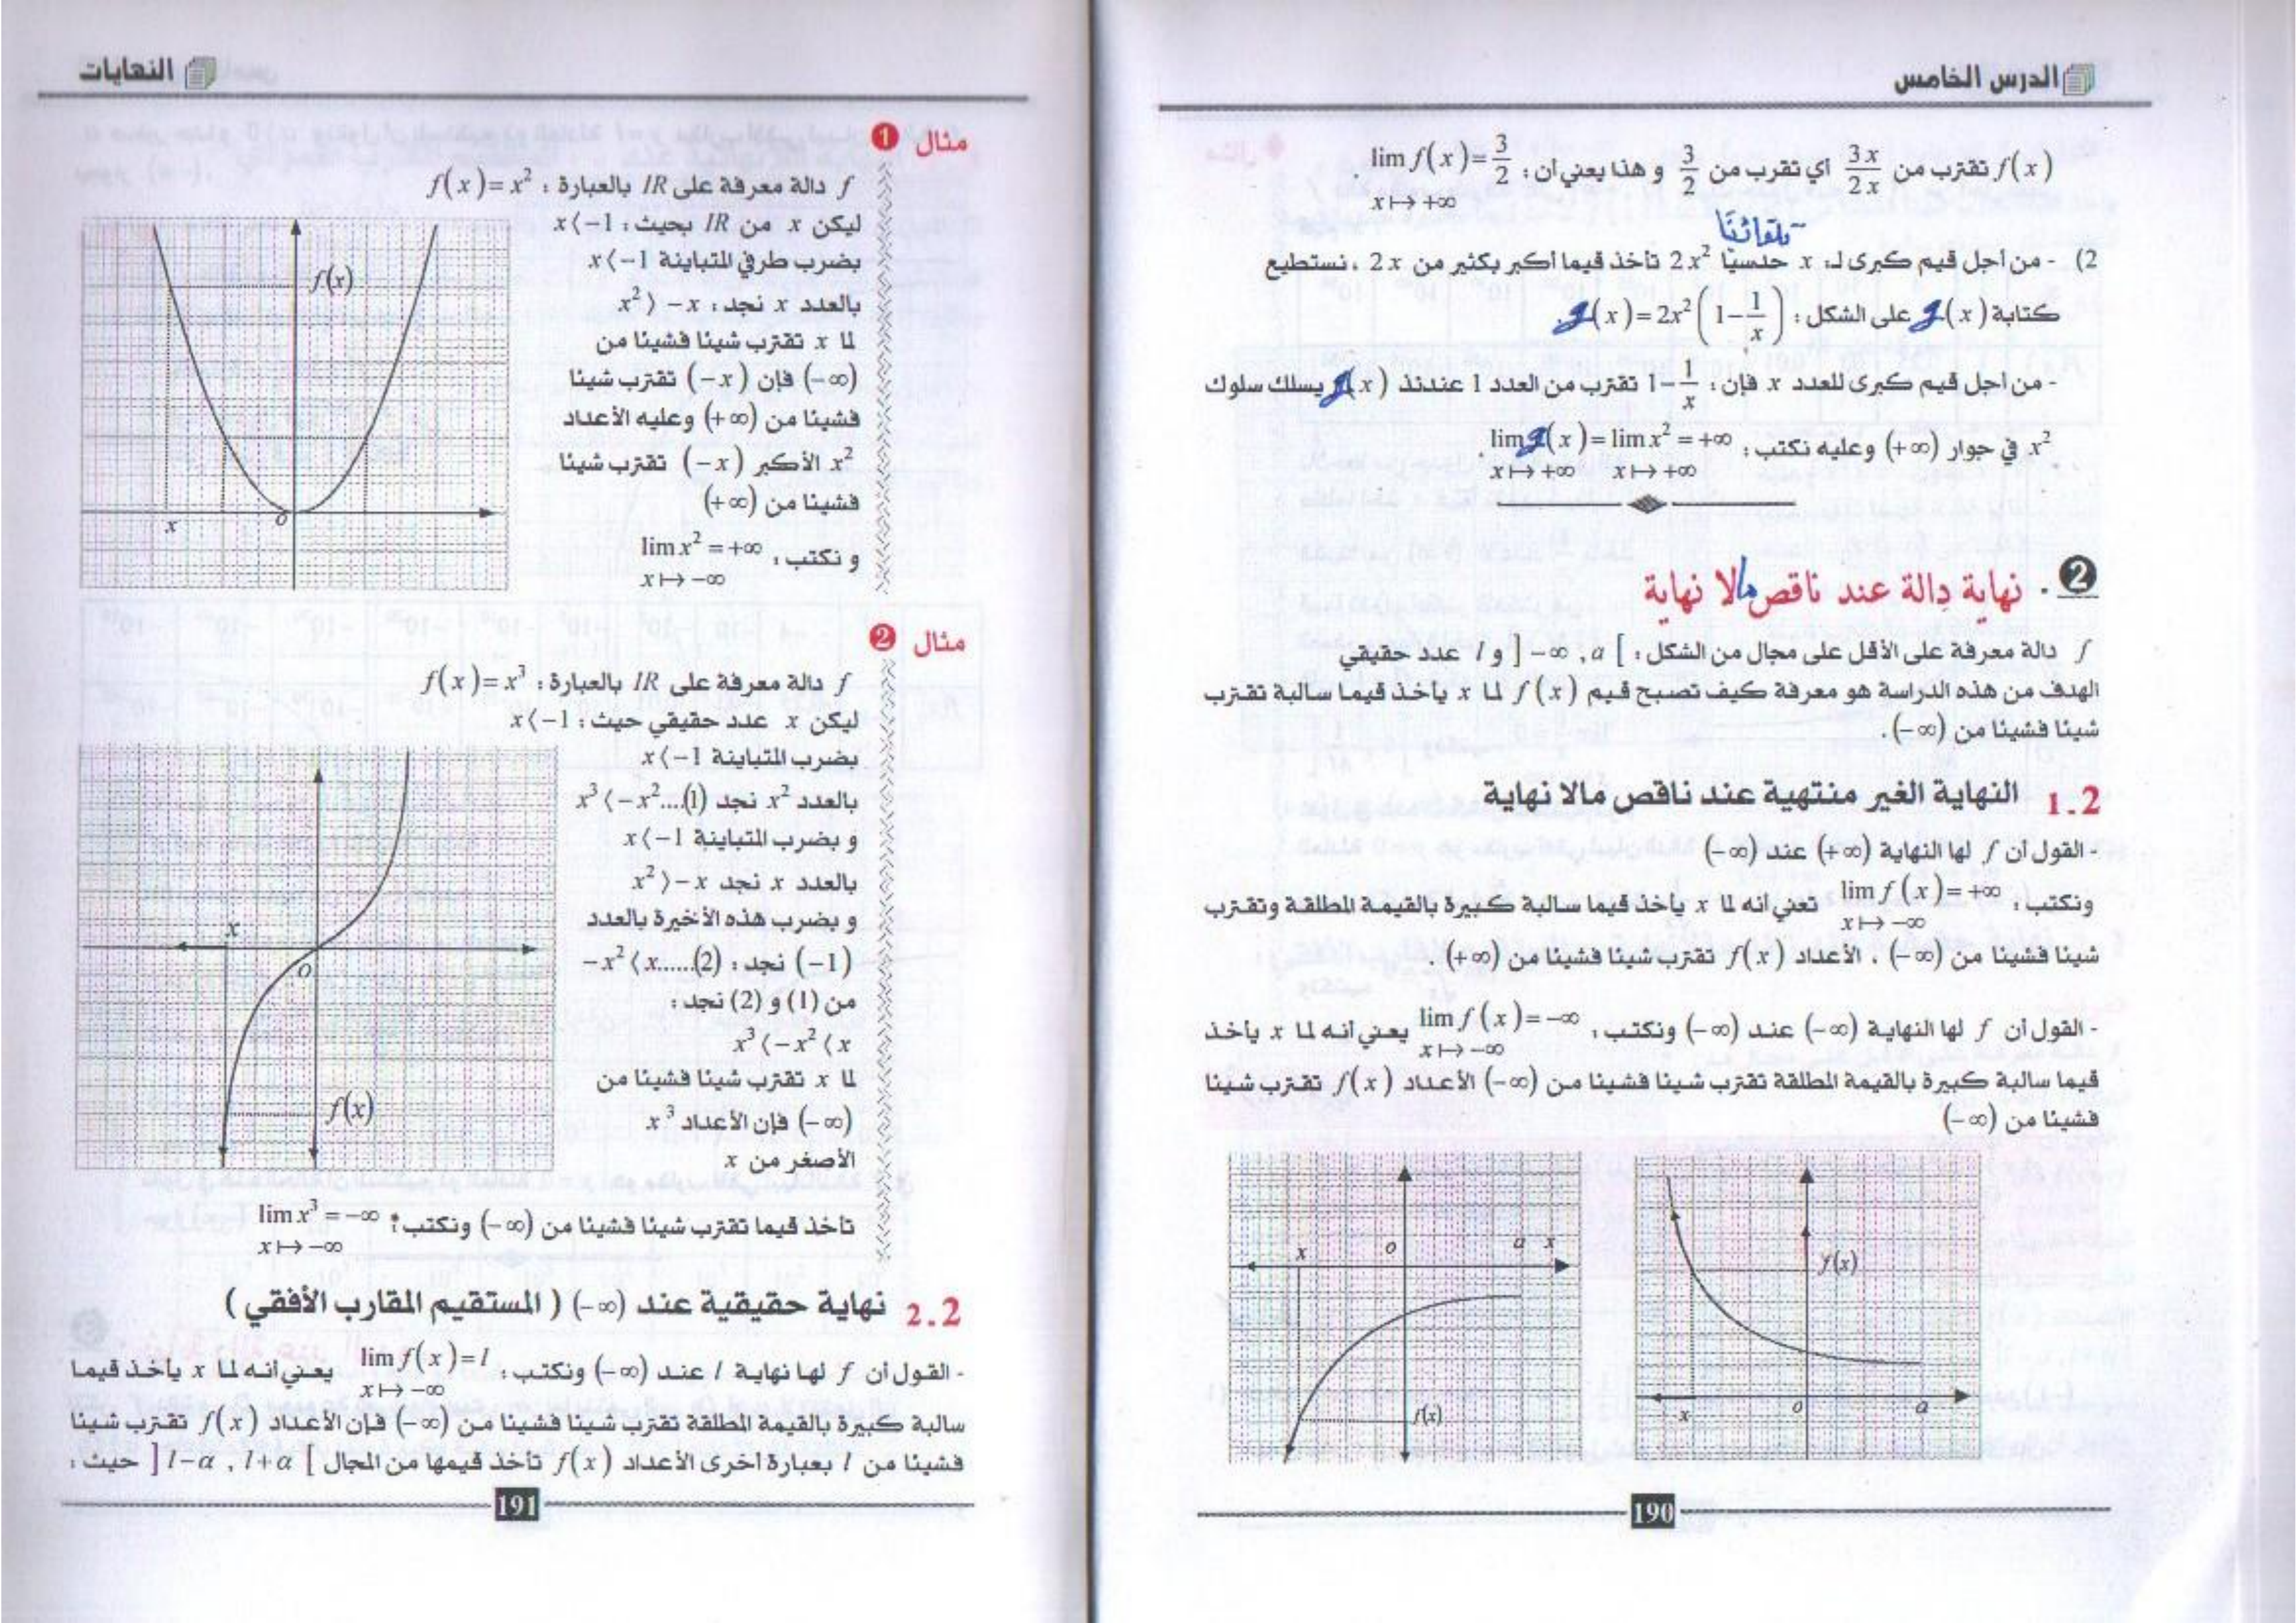 الدرس الخامس
f(x) تقترب من 3x/2x أي تقرب من 3/2 و هذا يعني أن : lim f(x) = 3/2
x ↦ +∞
تلقائنًا
2) - من أجل قيم كبرى لـ: x حدسيًا 2x² تأخذ قيما أكبر بكثير من 2x ، نستطيع
كتابة g(x) على الشكل : g(x) = 2x²(1 - 1/x).
- من أجل قيم كبرى للعدد x فإن : 1 - 1/x تقترب من العدد 1 عندئذ g(x) يسلك سلوك
x² في جوار (+∞) وعليه نكتب : lim g(x) = lim x² = +∞ .
x ↦ +∞ x ↦ +∞
2 . نهاية دالة عند ناقص مالا نهاية
f دالة معرفة على الأقل على مجال من الشكل : ]-∞ , a[ و l عدد حقيقي
الهدف من هذه الدراسة هو معرفة كيف تصبح قيم f(x) لما x يأخذ قيما سالبة تقترب
شيئا فشيئا من (-∞) .
1.2 النهاية الغير منتهية عند ناقص مالا نهاية
- القول أن f لها النهاية (+∞) عند (-∞)
ونكتب : lim f(x) = +∞ تعني أنه لما x يأخذ قيما سالبة كبيرة بالقيمة المطلقة وتقترب
x ↦ -∞
شيئا فشيئا من (-∞) ، الأعداد f(x) تقترب شيئا فشيئا من (+∞) .
- القول أن f لها النهاية (-∞) عند (-∞) ونكتب : lim f(x) = -∞ يعني أنه لما x يأخذ
x ↦ -∞
قيما سالبة كبيرة بالقيمة المطلقة تقترب شيئا فشيئا من (-∞) الأعداد f(x) تقترب شيئا
فشيئا من (-∞)
f(x)
x o a
x o a x
f(x)
190
النهايات
مثال 1
f دالة معرفة على IR بالعبارة : f(x) = x²
ليكن x من IR بحيث : x⟨-1
بضرب طرفي المتباينة x⟨-1
بالعدد x نجد : x²⟩-x
لما x تقترب شيئا فشيئا من
(-∞) فإن (-x) تقترب شيئا
فشيئا من (+∞) وعليه الأعداد
x² الأكبر (-x) تقترب شيئا
فشيئا من (+∞)
و نكتب : lim x² = +∞
x ↦ -∞
f(x)
x o
مثال 2
f دالة معرفة على IR بالعبارة : f(x) = x³
ليكن x عدد حقيقي حيث : x⟨-1
بضرب المتباينة x⟨-1
بالعدد x² نجد x³⟨-x²...(1)
و بضرب المتباينة x⟨-1
بالعدد x نجد x²⟩-x
و بضرب هذه الأخيرة بالعدد
(-1) نجد : -x²⟨x......(2)
من (1) و (2) نجد :
x³⟨-x²⟨x
لما x تقترب شيئا فشيئا من
(-∞) فإن الأعداد x³
الأصغر من x
تأخذ قيما تقترب شيئا فشيئا من (-∞) ونكتب : lim x³ = -∞
x ↦ -∞
x
o
f(x)
2.2 نهاية حقيقية عند (-∞) ( المستقيم المقارب الأفقي )
- القول أن f لها نهاية l عند (-∞) ونكتب : lim f(x) = l يعني أنه لما x يأخذ قيما
x ↦ -∞
سالبة كبيرة بالقيمة المطلقة تقترب شيئا فشيئا من (-∞) فإن الأعداد f(x) تقترب شيئا
فشيئا من l بعبارة أخرى الأعداد f(x) تأخذ قيمها من المجال ]l-α , l+α[ حيث :
191